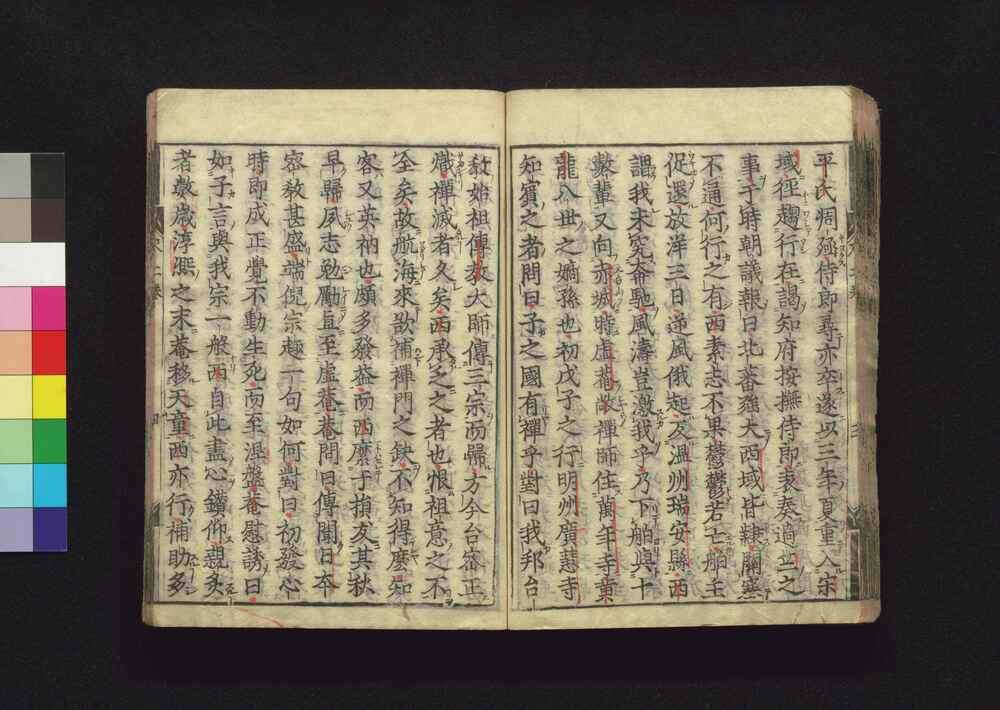 平氏凋殛侍郎尋亦卒遂以三年夏重入宋
域徑趨行在謁知府按撫侍郎表奏過竺之
事于時朝議報曰北蕃強大西域皆隷關塞
不通何行之有西素志不果鬱鬱若亡舶主
促還放洋三日逆風俄起及溫州瑞安縣西
謂我未究奔馳風濤豈激我乎乃下舶與十
數輩又向赤城時虛菴敞禪師住萬年寺黃
龍八世之嫡孫也初戊子之行明州廣慧寺
知賓之者問曰子之國有禪乎對曰我邦台
敎始祖傳敎大師傳三宗而歸方今台密正
熾禪滅者久矣西承乏之者也恨祖意之不
全矣故航海來欲補禪門之缺不知得麽知
客又英衲也頗多發益而西縻于損友其秋
早歸夙志勉勵直至虛菴菴問曰傳聞日本
密教甚盛端倪宗趣一句如何對曰初發心
時即成正覺不動生死而至涅盤菴慰誘曰
如子言與我宗一般西自此盡心鑽仰親炙
者數歲淳熈之末菴移天童西亦行補助多